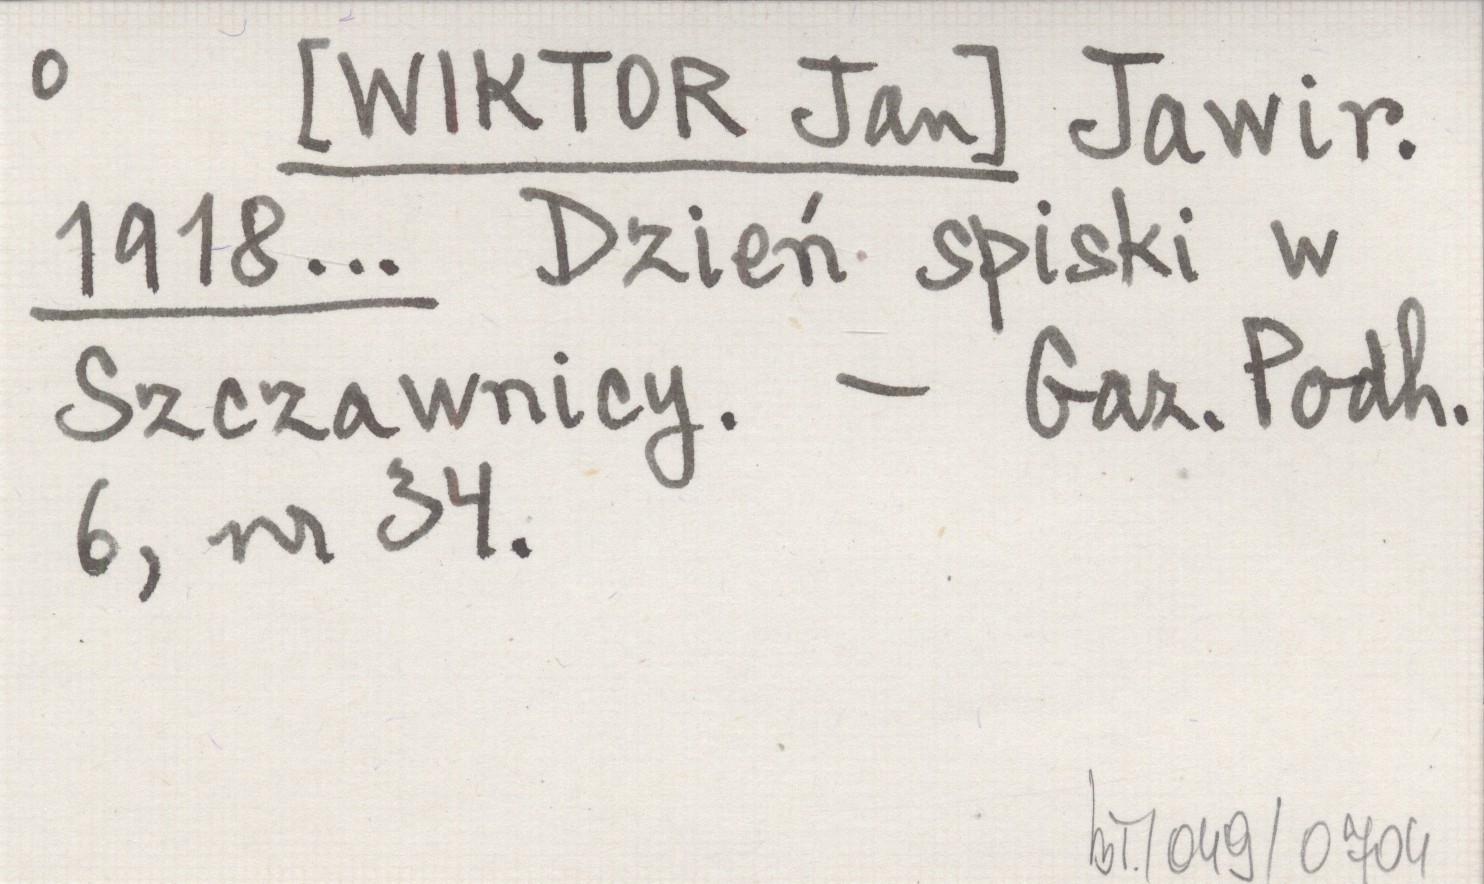 o [WIKTOR Jan] Jawir.
1918... Dzień spiski w
Szczawnicy. — Gaz. Podh.
6, nr 34.
bT./049/0704